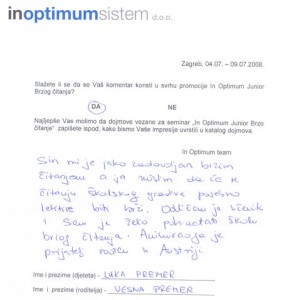 inoptimumsistem d.o.o.
Zagreb, 04.07. – 09.07.2008.
Slažete li se da se Vaš komentar koristi u svrhu promocije In Optimum Junior
Brzog čitanja?
DA NE
Najljepše Vas molimo da dojmove vezane za seminar „In Optimum Junior Brzo
čitanje“ zapišete ispod, kako bismo Vaše impresije uvrstili u katalog dojmova.
In Optimum team
Sin mi je jako zadovoljan brzim
čitanjem a ja mislim da će u
čitanju školskog gradiva posebno
lektire biti brži. Odličan je učenik
i sam je želio pohađati školu
brzog čitanja. Animirao je
prijatelj u Austriji
Ime i prezime (djeteta) - LUKA PREMER
Ime i prezime (roditelja) - VESNA PREMER